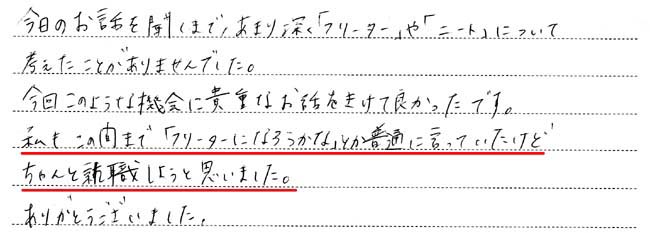 今日のお話を聞くまで、あまり深く「フリーター」や「ニート」について
考えたことがありませんでした。
今回このような機会に貴重なお話をきけて良かったです。
私もこの間まで「フリーターになろうかな」とか普通に言っていたけど
ちゃんと就職しようと思いました。
ありがとうございました。